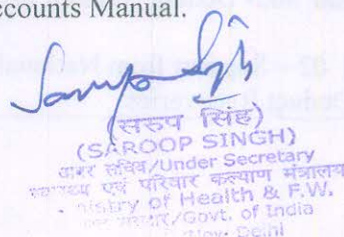 ccounts Manual.
(सरुप सिंह)
(SAROOP SINGH)
अवर सचिव/Under Secretary
स्वास्थ्य एवं परिवार कल्याण मंत्रालय
nistry of Health & F.W.
/Govt. of India
Delhi